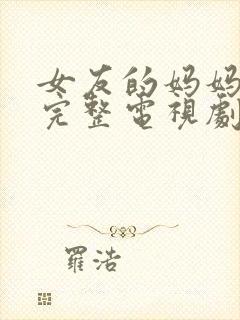 女友的妈妈
完整電視劇
羅浩